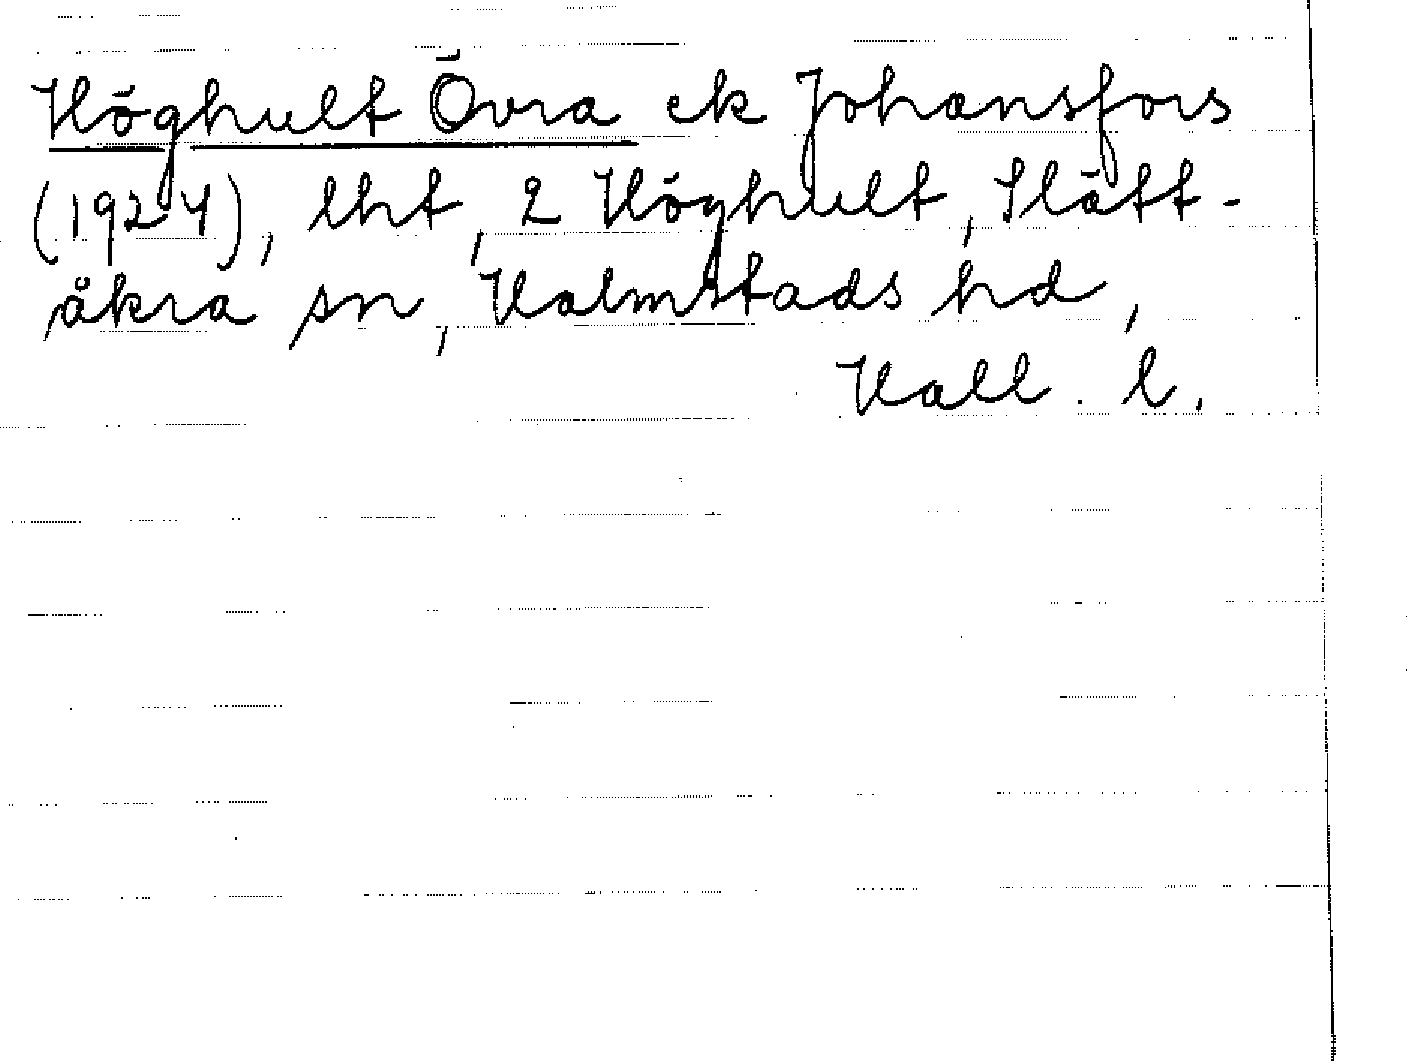 Höghult Övra ek Johansfors
(1924), lht, 2 Höghult, Slätt-
åkra sn, Halmstads hd,
Hall. l.